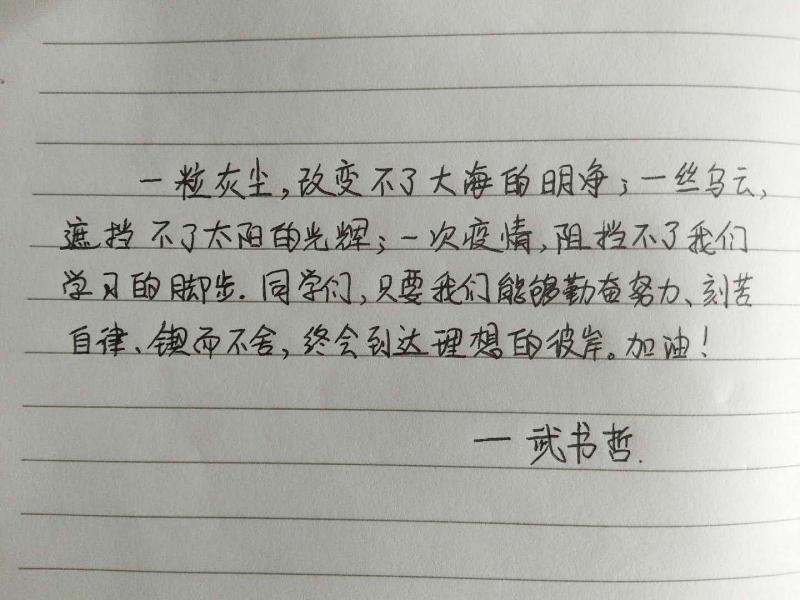 一粒灰尘,改变不了大海的明净;一丝乌云,
遮挡不了太阳的光辉;一次疫情,阻挡不了我们
学习的脚步.同学们,只要我们能够勤奋努力、刻苦
自律、锲而不舍,终会到达理想的彼岸。加油!
— 武书哲.